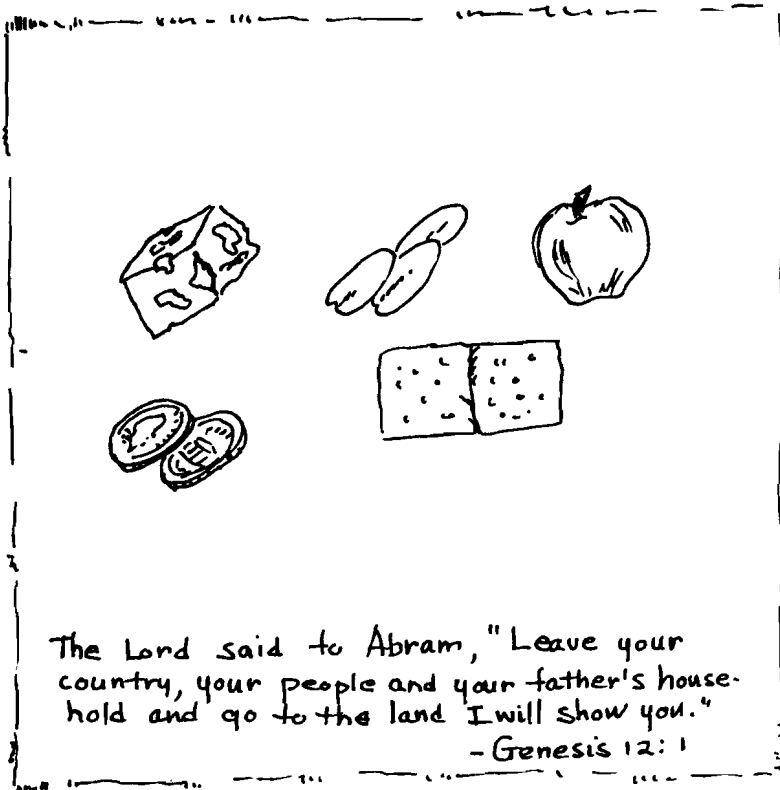 The Lord said to Abram, "Leave your
country, your people and your father's house-
hold and go to the land I will show you."
- Genesis 12:1